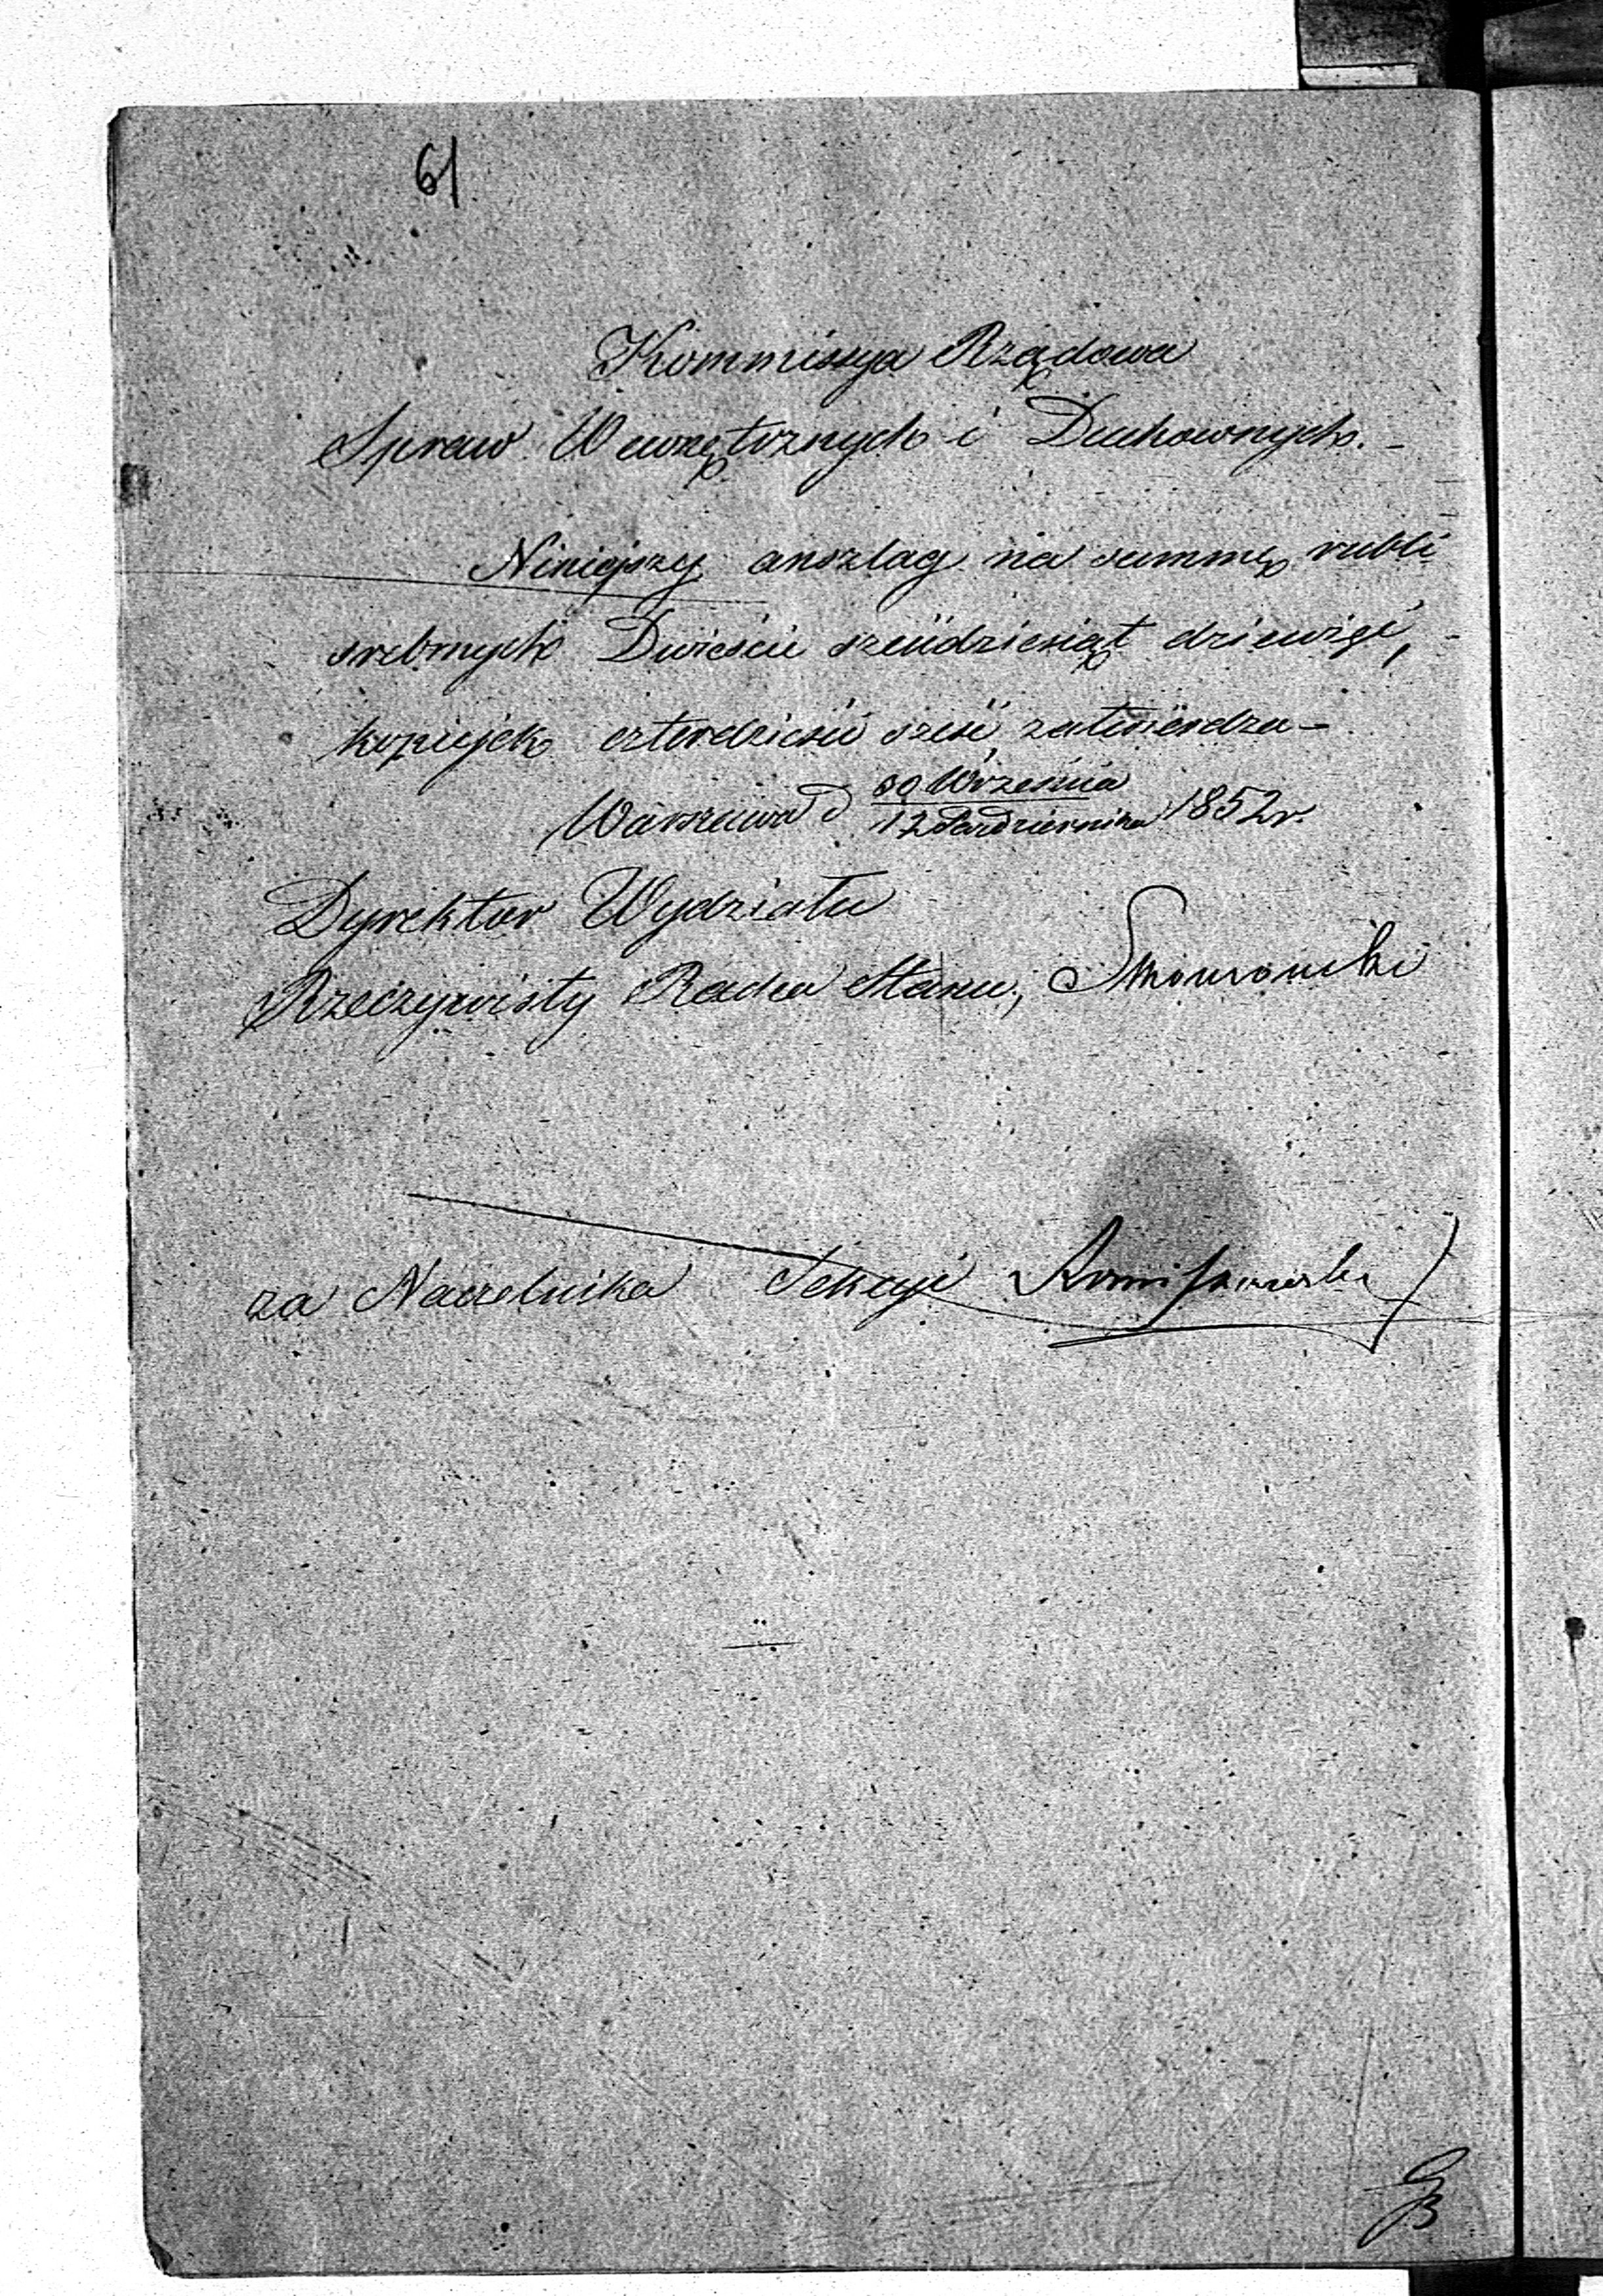 61
Kommissya Rządowa
Spraw Wewnętrznych i Duchownych.
Niniejszy anszlag na summę rubli
srebrnych Dwieście sześćdziesiąt dziewięć,
kopiejek czterdzieści sześć zatwierdza
Warszawa d 30 Września
12 Października 1852 r.
Dyrektor Wydziału
Rzeczywisty Radca Stanu, Skowroński
za Naczelnika Sekcyi